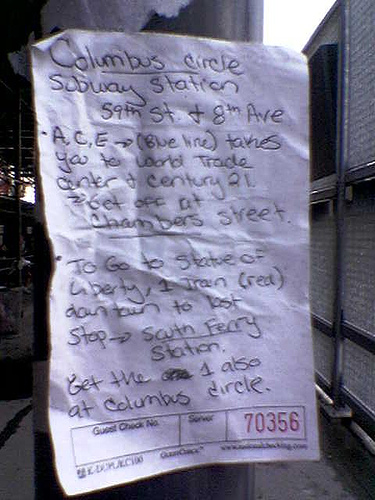 Columbus circle
Subway Station
59th St. & 8th Ave
• A, C, E → (Blue line) takes
you to World Trade
Center & Century 21.
→ Get off at
Chambers Street.
• To Go to Statue of
Liberty, 1 Train (red)
downtown to last
Stop → South Ferry
Station.
Get the 1 also
at Columbus circle.
Guest Check No. Server 70356
GuestChecks™